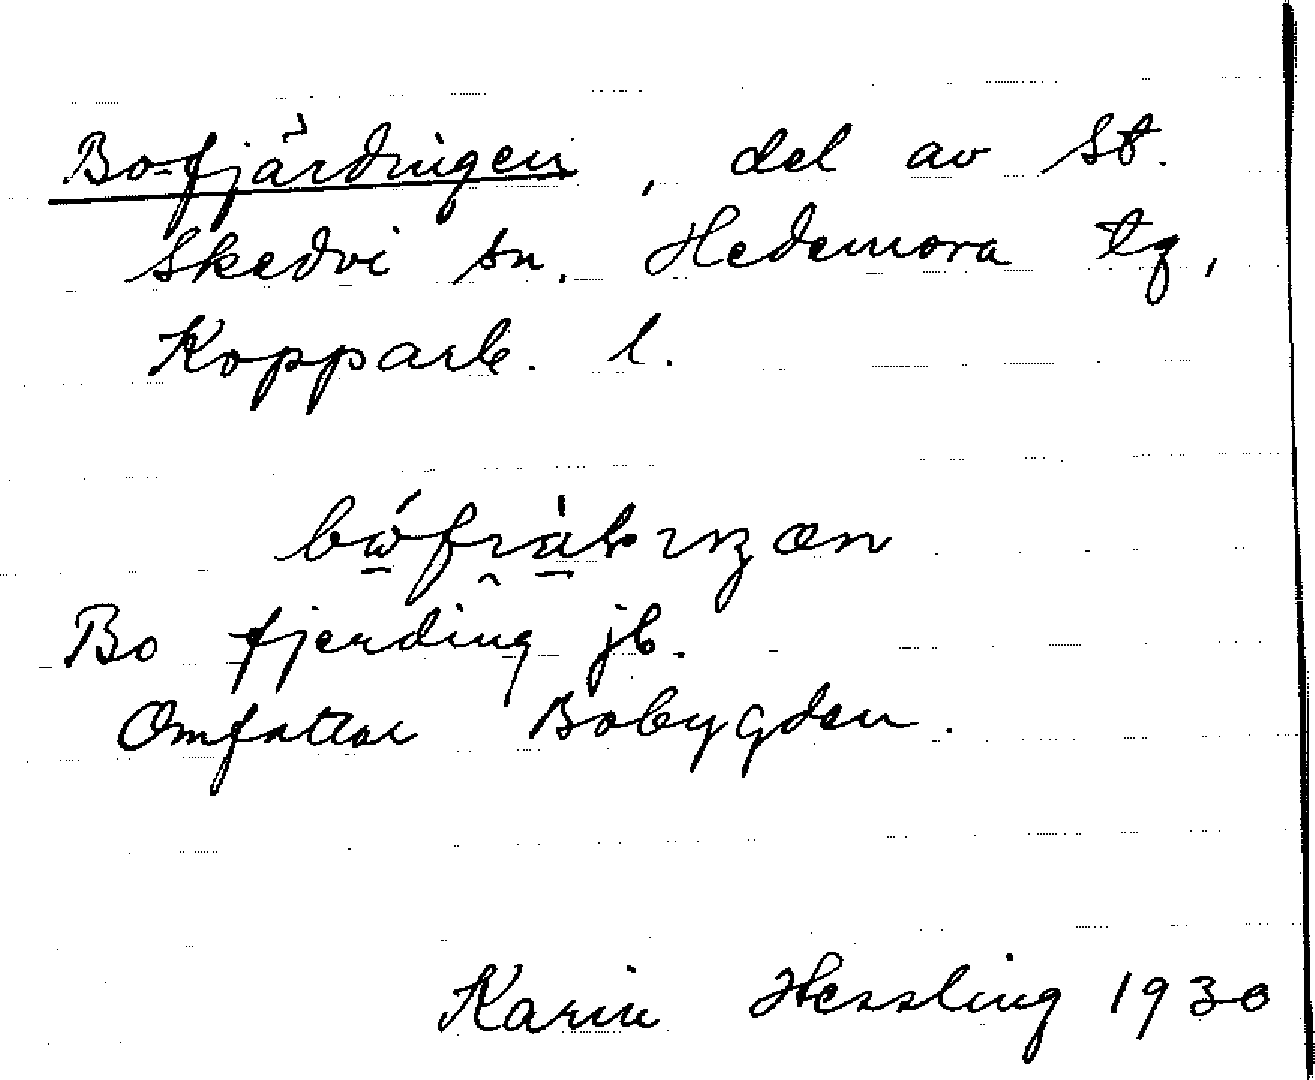 Bo-fjärdingen, del av St.
Skedvi sn. Hedemora tg,
Kopparb. l.
Bo fjerding jb.
Omfattar Bobygden.
Karin Hessling 1930